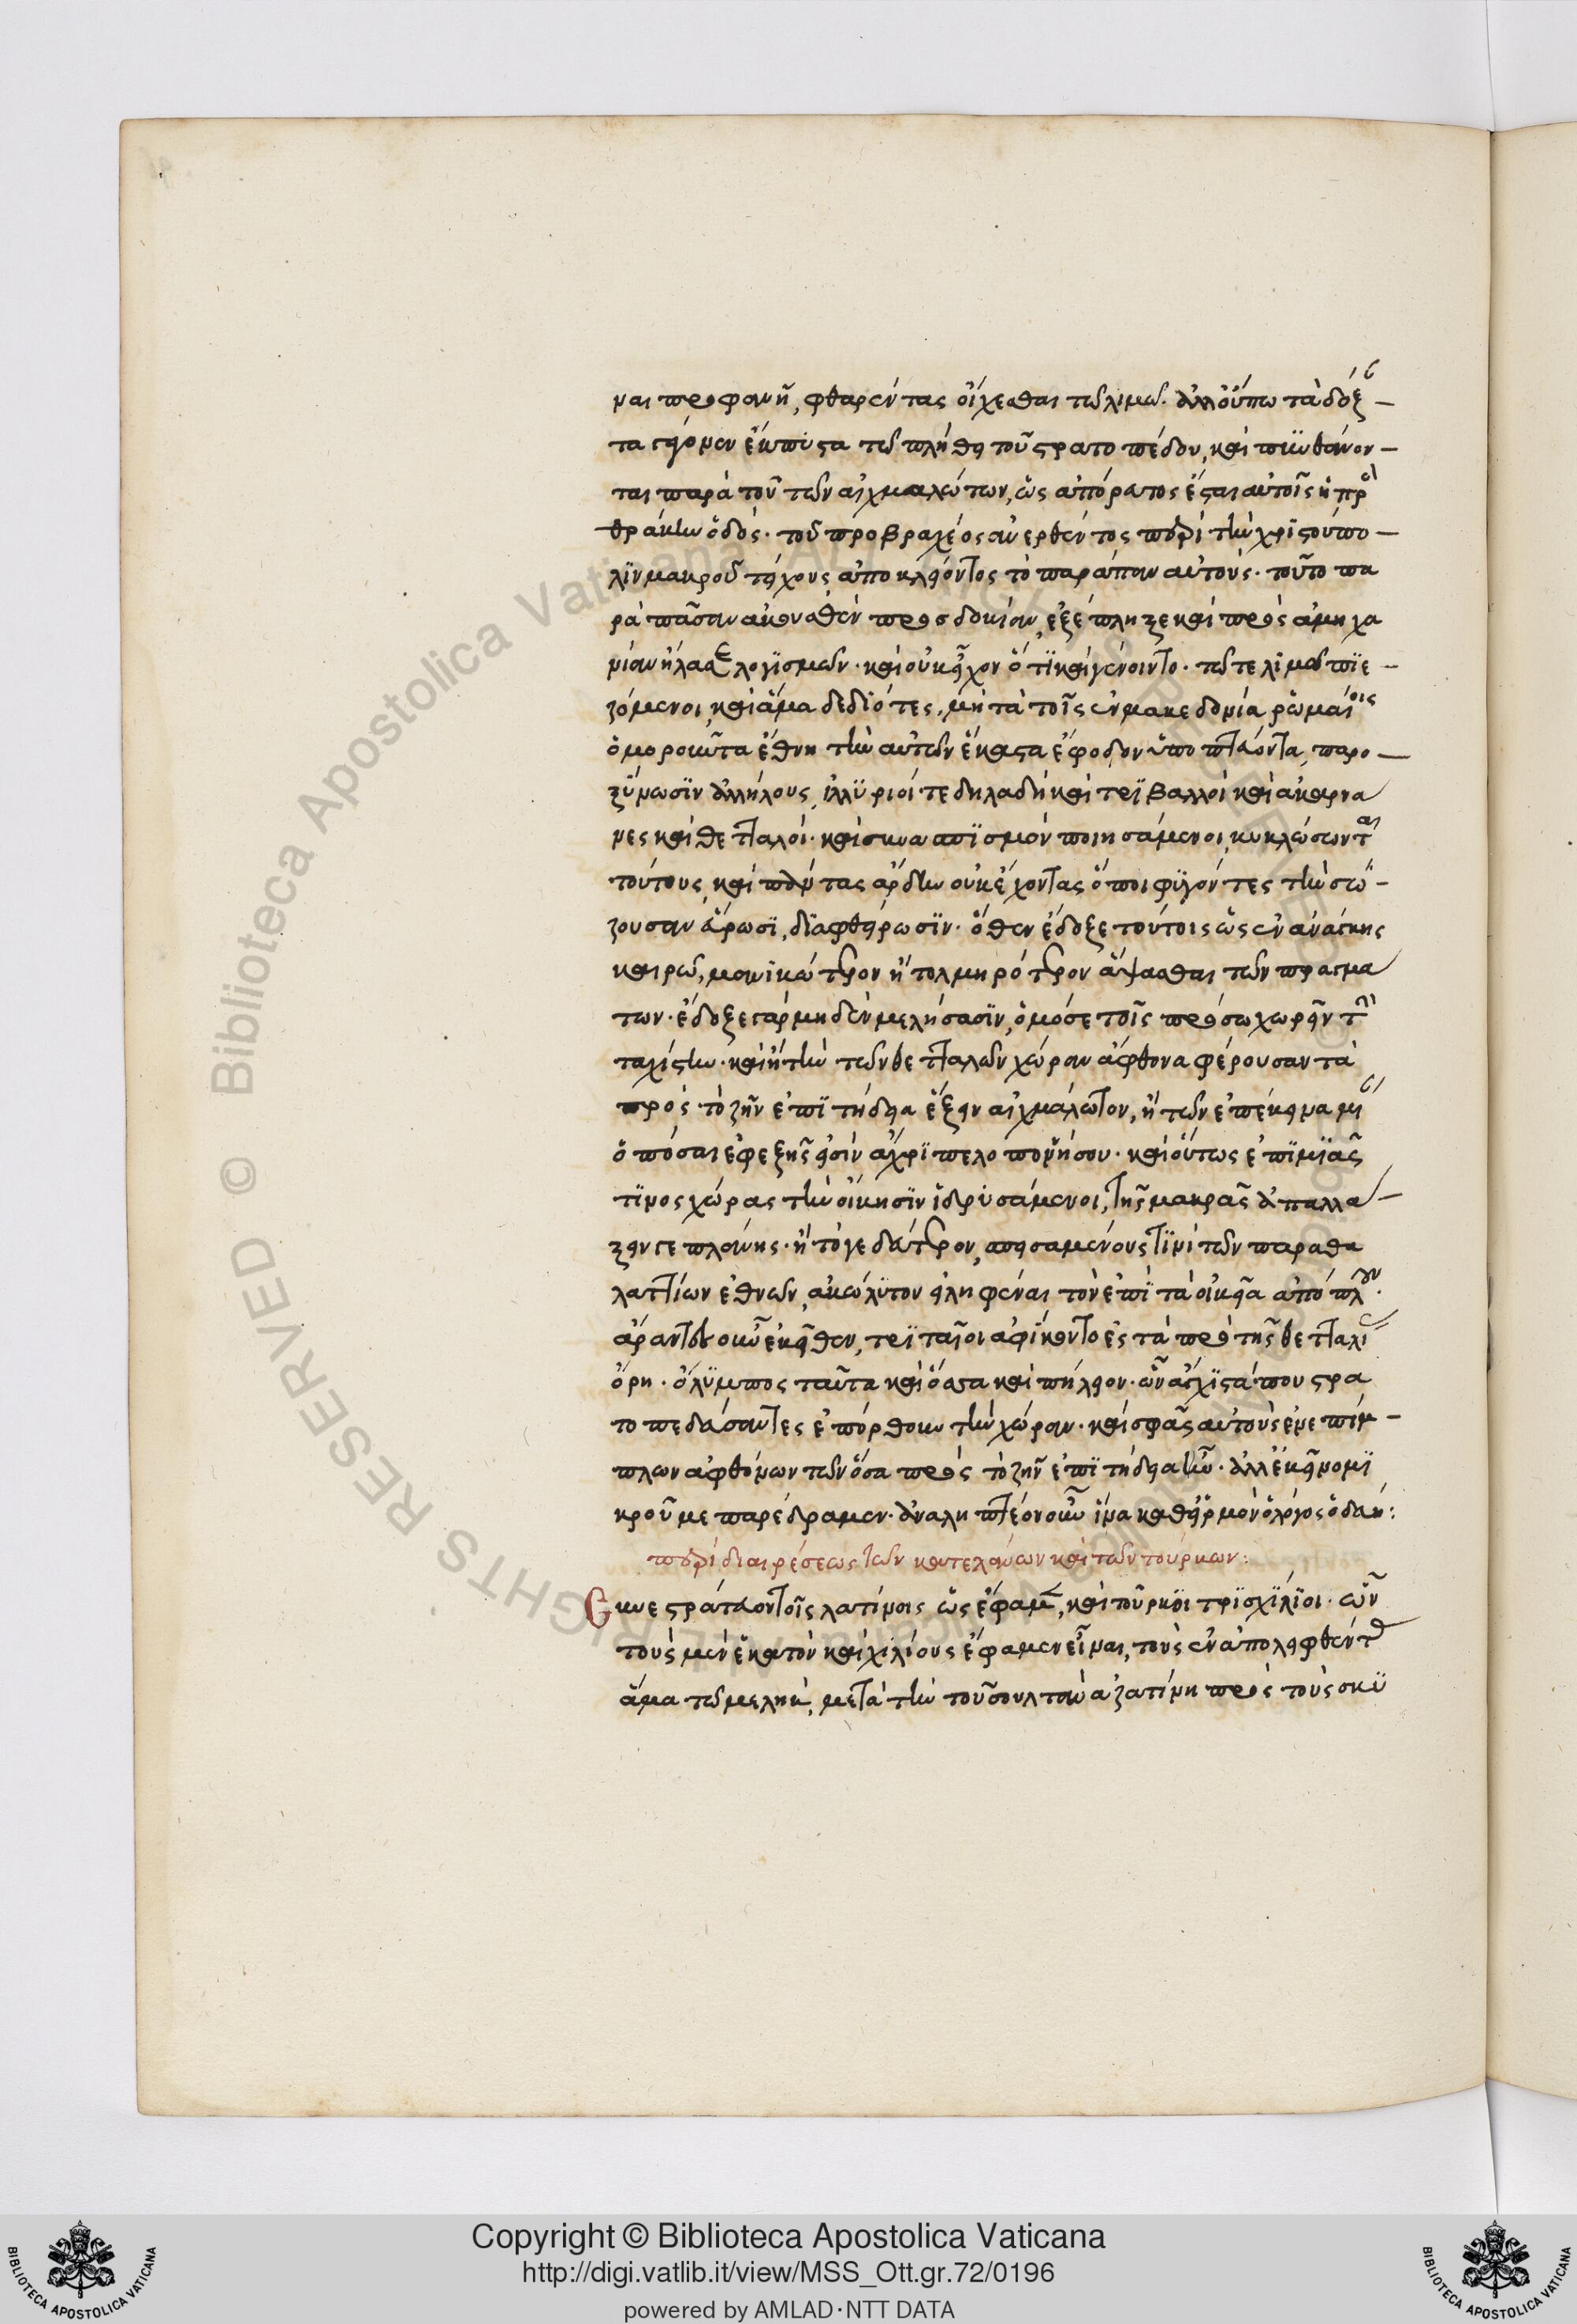 ναι προφανῆ, φθαρέντας οἴχεσθαι τῷ λιμῷ. ἀλλ' οὔπω τὰ δόξ
τα γῆρ μεν ἔκπυστα τῷ πλήθει τοῦ στρατοπέδου, καὶ πυνθάνον
ται παρά του τῶν αἰχμαλώτων, ὡς ἀπόρατος ἔσται αὐτοῖς ἡ πρὸς
θράκην ὁδός. τοῦ προβραχέος ἀνερθέντος περὶ τὴν χριστούπο
λϊν μακροῦ τείχους ἀποκλείοντος τὸ παράπαν αὐτούς. τοῦτο πα
ρὰ πᾶσαν ἀκουσθὲν προσδοκίαν, ἐξέπληξε καὶ πρὸς ἀμηχα
νίαν ἤλασε λογϊσμῶν. καὶ οὐκ εἶχον ὅ τϊ καὶ γένοιντο. τῷ τε λιμῷ πϊε
ζόμενοι, καὶ ἅμα δεδιότες, μὴ τὰ τοῖς ἐν μακεδονία ῥωμαίοις
ὁμοροῦντα ἔθνη τὴν αὐτῶν ἕκαστα ἔφοδον ὑποπτεύοντα, παρο
ξύνωσϊν ἀλλήλους, ἰλλϋριοί τε δηλαδὴ καὶ τρϊβαλλοὶ καὶ ἀκαρνα
νες καὶ θετταλοί. καὶ συνασπϊσμὸν ποιησάμενοι, κυκλώσωνται
τούτους, καὶ πάντας ἄρδην οὐκ ἔχοντας ὅποι φϋγόντες τὴν σώ
ζουσαν εὕρωσϊ, δϊαφθείρωσϊν. ὅθεν ἔδοξε τούτοις ὡς ἐν ἀνάγκης
καιρῷ, μανικώτερον ἢ τολμηρότερον ἅψασθαι τῶν πραγμα
των. ἔδοξε γὰρ μηδὲν μελήσασϊν, ὁμόσε τοῖς πρόσω χωρεῖν τὴν
ταχίστην. καὶ ἢ τὴν τῶν θετταλῶν χώραν ἄφθονα φέρουσαν τὰ
πρὸς τὸ ζῆν ἐπϊτήδεια ἕξειν αἰχμάλωτον, ἢ τῶν ἐπέκεινα μι
ὁπόσαι ἐφεξῆς εἰσὶν ἄχρϊ πελοποννήσου. καὶ οὕτως ἐπϊ μϊᾶς
τϊνος χώρας τὴν οἴκησϊν ἱδρυσάμενοι, τῆς μακρᾶς ἀπαλλα
ξειν γε πλάνης. ἢ τό γε δεύτερον, σπεισαμένους τϊνὶ τῶν παραθα
λαττίων ἐθνῶν, ἀκώλϋτον εἰληφέναι τὸν ἐπϊ τὰ οἰκεῖα ἀπόπλουν.
ἄραντες οὖν ἐκεῖθεν, τρϊταῖοι ἀφίκοντο ἐς τὰ πρὸ τῆς θετταλί
ὄρη. ὄλϋμπος ταῦτα καὶ ὄσσα καὶ πήλιον. ὧν ἄγχϊστά που στρα
τοπεδεύσαντες ἐπόρθουν τὴν χώραν. καὶ σφᾶς αὐτοὺς ἐνεπίμ
πλων ἀφθόνων τῶν ὅσα πρὸς τὸ ζῆν ἐπϊτήδεια ἦν. ἀλλ' ἐκεῖνο μϊ
κροῦ με παρέδραμεν. ἀναληπτέον οὖν ἵνα καθ' εἱρμὸν ὁ λόγος ὁδεύη:
περὶ διαιρέσεως τῶν κατελάνων καὶ τῶν τούρκων:
Συνεστράτευον τοῖς λατίνοις ὡς ἔφαμεν, καὶ τοῦρκϊοι τρϊσχίλϊοι. ὧν
τοὺς μὲν ἑκατὸν καὶ χιλίους ἔφαμεν εἶναι, τοὺς ἐναπολειφθέντας
ἅμα τῷ μεληκ, μετὰ τὴν τοῦ σουλτὰν ἀζατίνη πρὸς τοὺς σκϋ